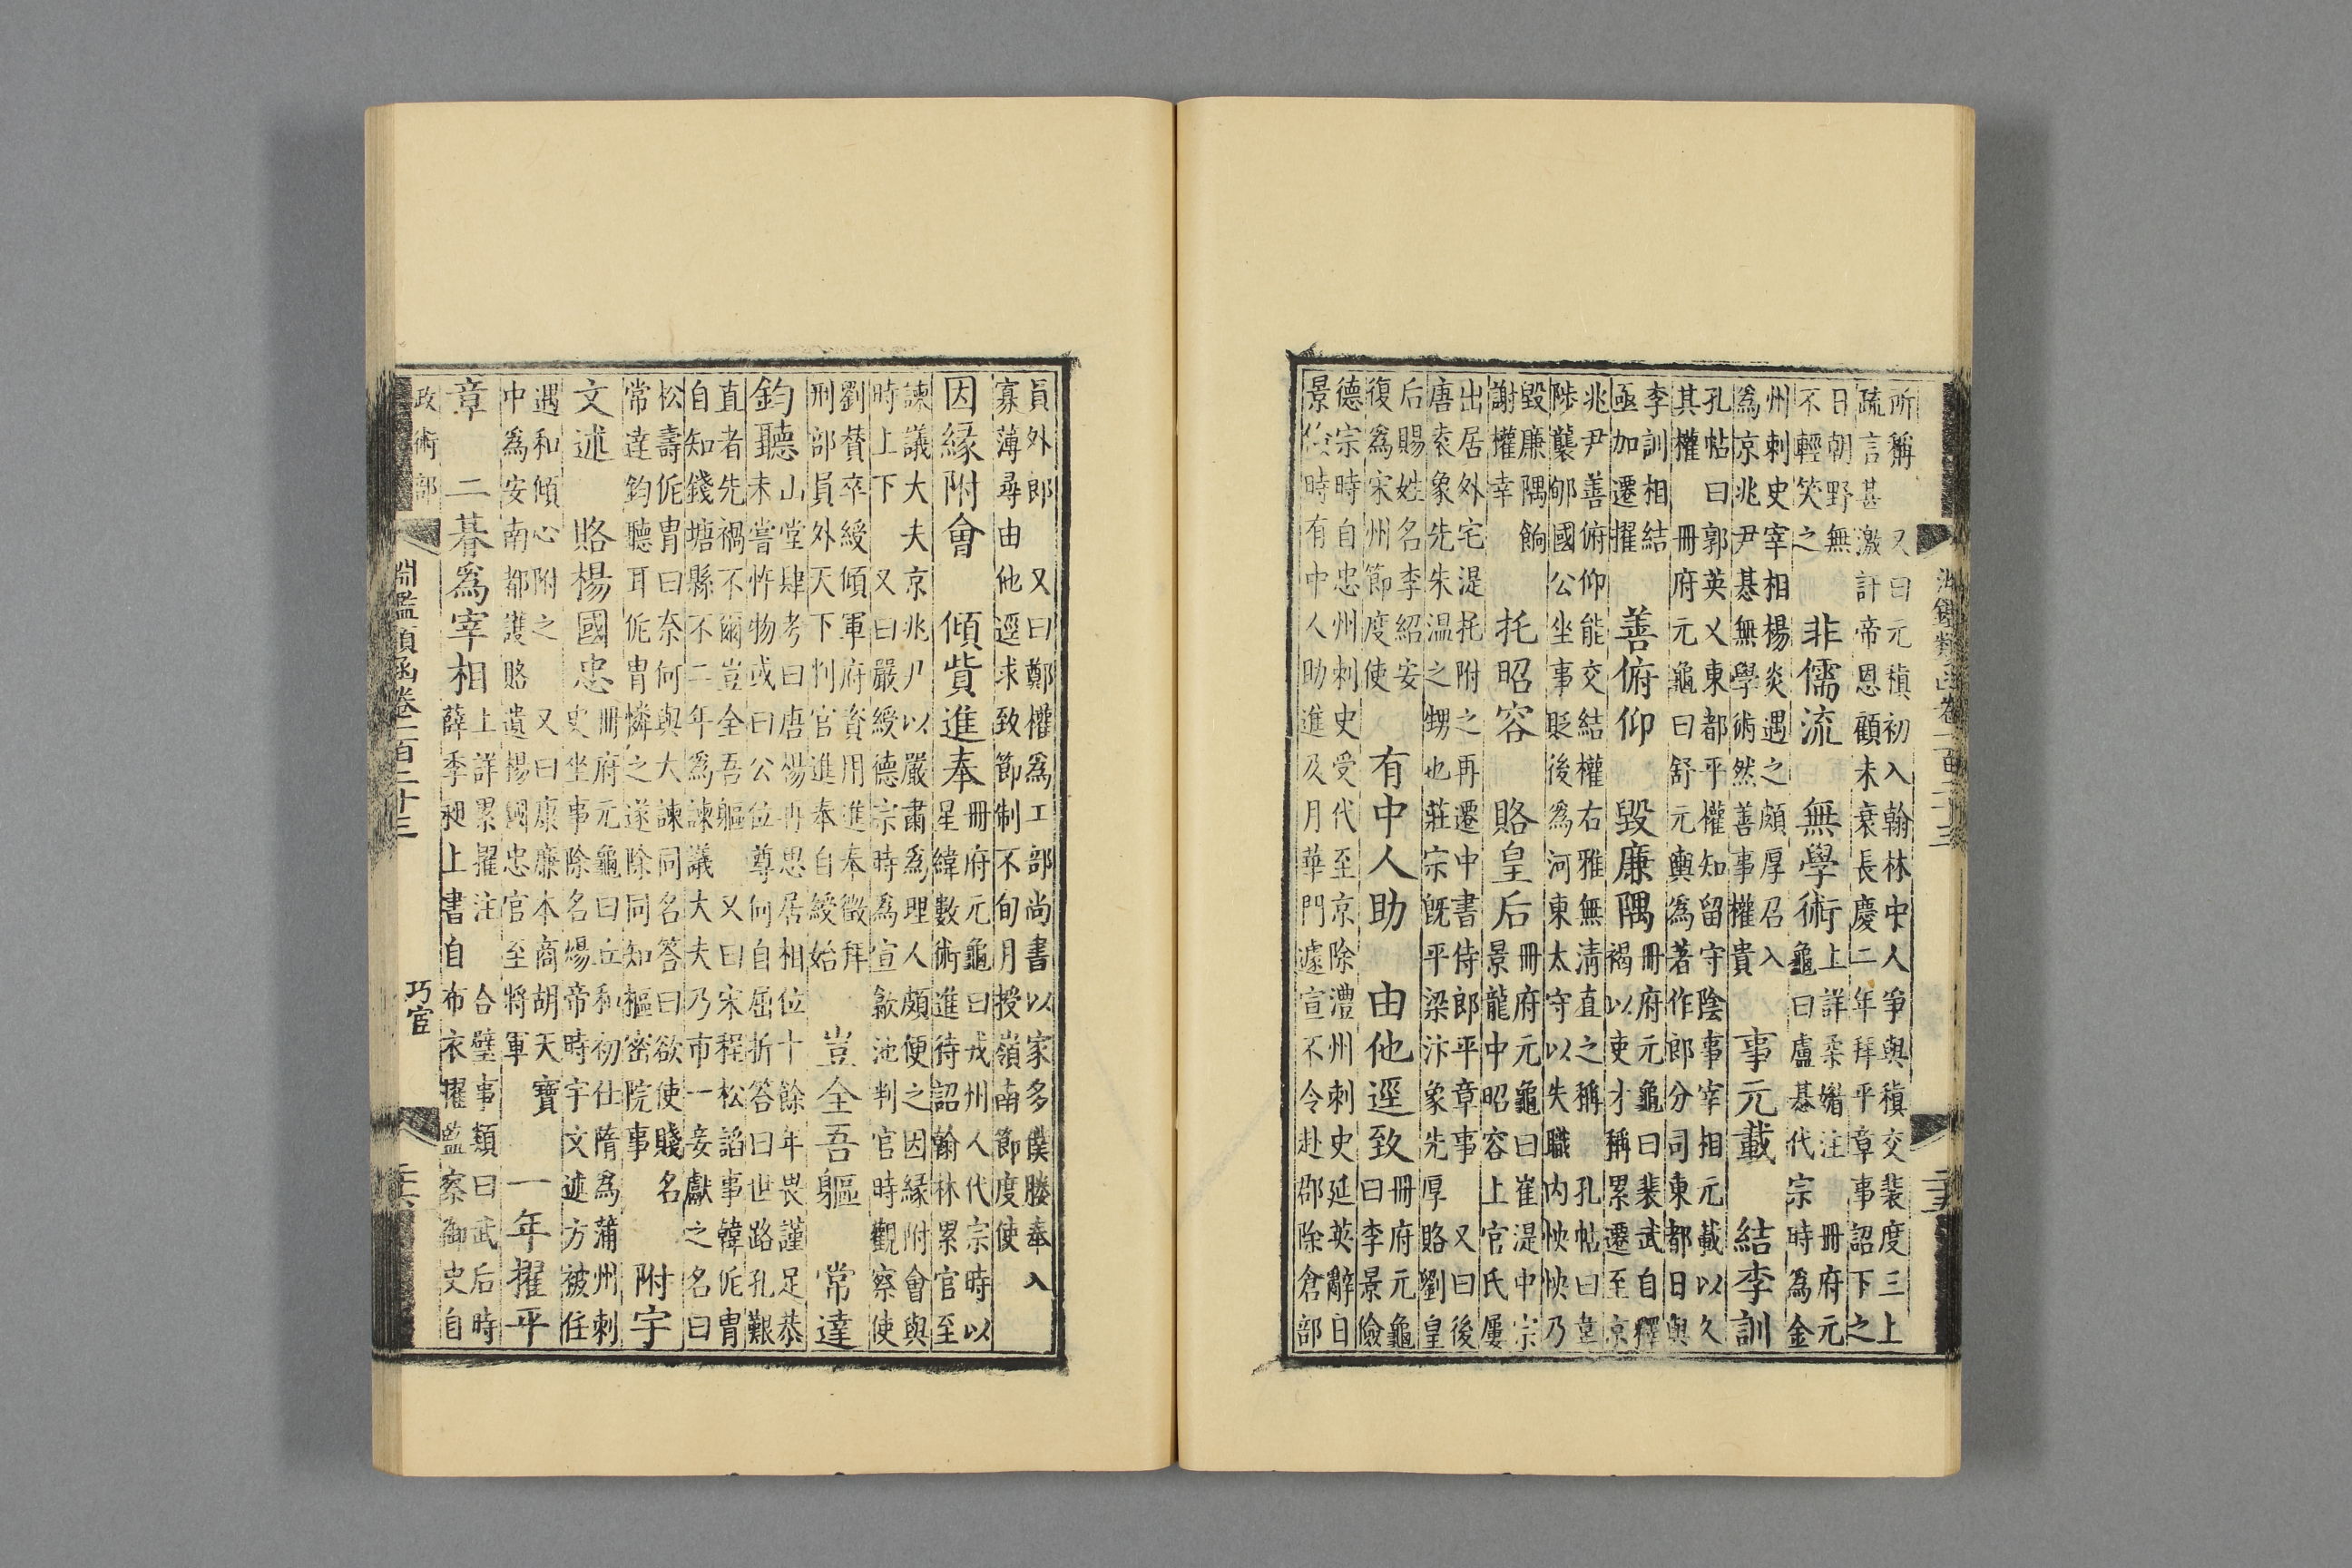 淵鑑類函卷一百二十三
二十五
所稱　又曰元稹初入翰林中人爭與稹交裴度三上
疏言甚激計帝恩顧未衰長慶二年拜平章事詔下之
日朝野無
不輕笑之
非儒流　無學術
上詳柔媚注　冊府元
龜曰盧惎代宗時為金
州刺史宰相楊炎遇之頗厚召入
為京兆尹惎無學術然善事權貴
事元載　結李訓
孔帖曰郭英乂東都平權知留守陰事宰相元載以久
其權　冊府元龜曰舒元輿為著作郎分司東都日與
李訓相結
亟加遷擢
善俯仰　毀廉隅
冊府元龜曰裴武自釋
褐以吏才稱累遷至京
兆尹善俯仰能交結權右雅無清直之稱　孔帖曰韋
陟襲郇國公坐事貶後為河東太守以失職內怏怏乃
毀廉隅餉
謝權幸
托昭容　賂皇后
冊府元龜曰崔湜中宗
景龍中昭容上官氏屢
出居外宅湜托附之再遷中書侍郎平章事　又曰後
唐袁象先朱温之甥也莊宗既平梁汴象先厚賂劉皇
后賜姓名李紹安
復為宋州節度使
有中人助　由他逕致
冊府元龜
曰李景儉
德宗時自忠州刺史受代至京除澧州刺史延英辭日
景儉時有中人助進及月華門遽宣不令赴郡除倉部
員外郎　又曰鄭權為工部尚書以家多僕媵奉入
寡薄尋由他逕求致節制不旬月授嶺南節度使
因緣附會　傾貲進奉
冊府元龜曰戎州人代宗時以
星緯數術進待詔翰林累官至
諫議大夫京兆尹以嚴肅為理人頗便之因緣附會與
時上下　又曰嚴綬德宗時為宣歙池判官時觀察使
劉贊卒綬傾軍府資用進奉徵拜
刑部員外天下判官進奉自綬始
豈全吾軀　常達
鈞聽
山堂肆考曰唐楊再思居相位十餘年畏謹足恭
未嘗忤物或曰公位尊何自屈折答曰世路孔艱
直者先禍不爾豈全吾軀　又曰宋程松諂事韓侂冑
自知錢塘縣不二年為諫議大夫乃市一妾獻之名曰
松壽侂冑曰奈何與大諫同名答曰欲使賤名
常達鈞聽耳侂冑憐之遂除同知樞密院事
附宇
文述　賂楊國忠
冊府元龜曰丘和初仕隋為蒲州刺
史坐事除名煬帝時宇文述方被任
遇和傾心附之　又曰康廉本商胡天寶
中為安南都護賂遺楊國忠官至將軍
一年擢平
章　二朞為宰相
上詳累擢注　合璧事類曰武后時
薛季昶上書自布衣擢監察御史自
政術部
淵鑑類函卷一百二十三
巧宦
二十六